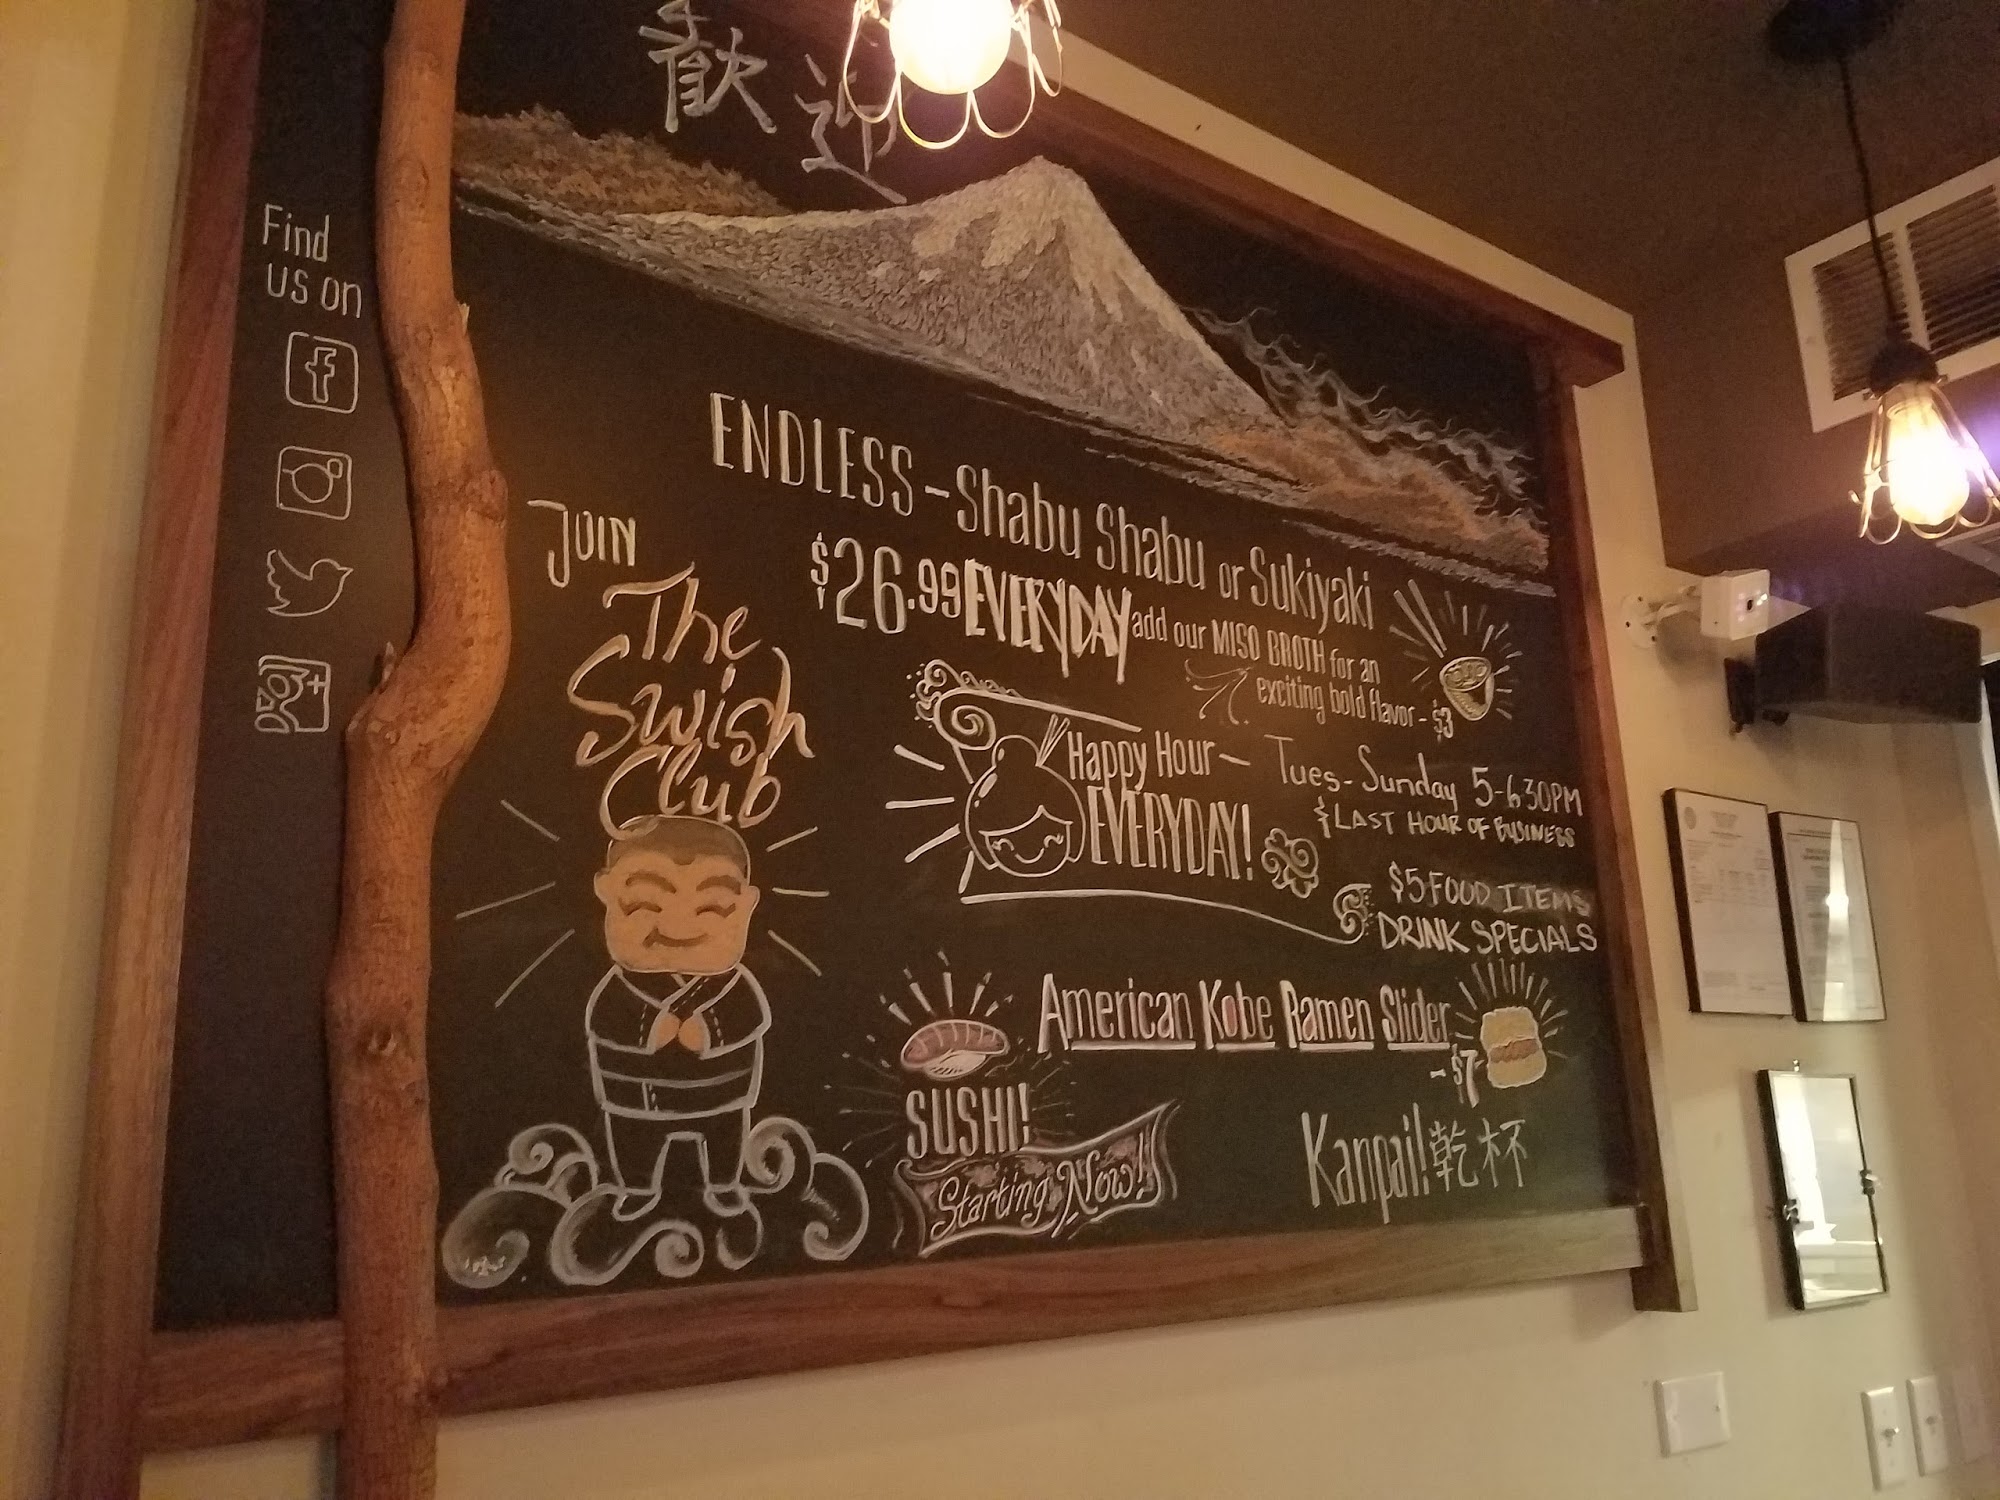 歡迎
Find
us on
f
g+
ENDLESS - Shabu Shabu or Sukiyaki
$26.99 EVERYDAY add our MISO BROTH for an
exciting bold flavor - $3
JOIN
The
Swish
Club
Happy Hour - Tues - Sunday 5-630PM
EVERYDAY! & LAST HOUR OF BUSINESS
$5 FOOD ITEMS
DRINK SPECIALS
American Kobe Ramen Slider
- $7
SUSHI!
Starting Now!!
Kanpai! 乾杯